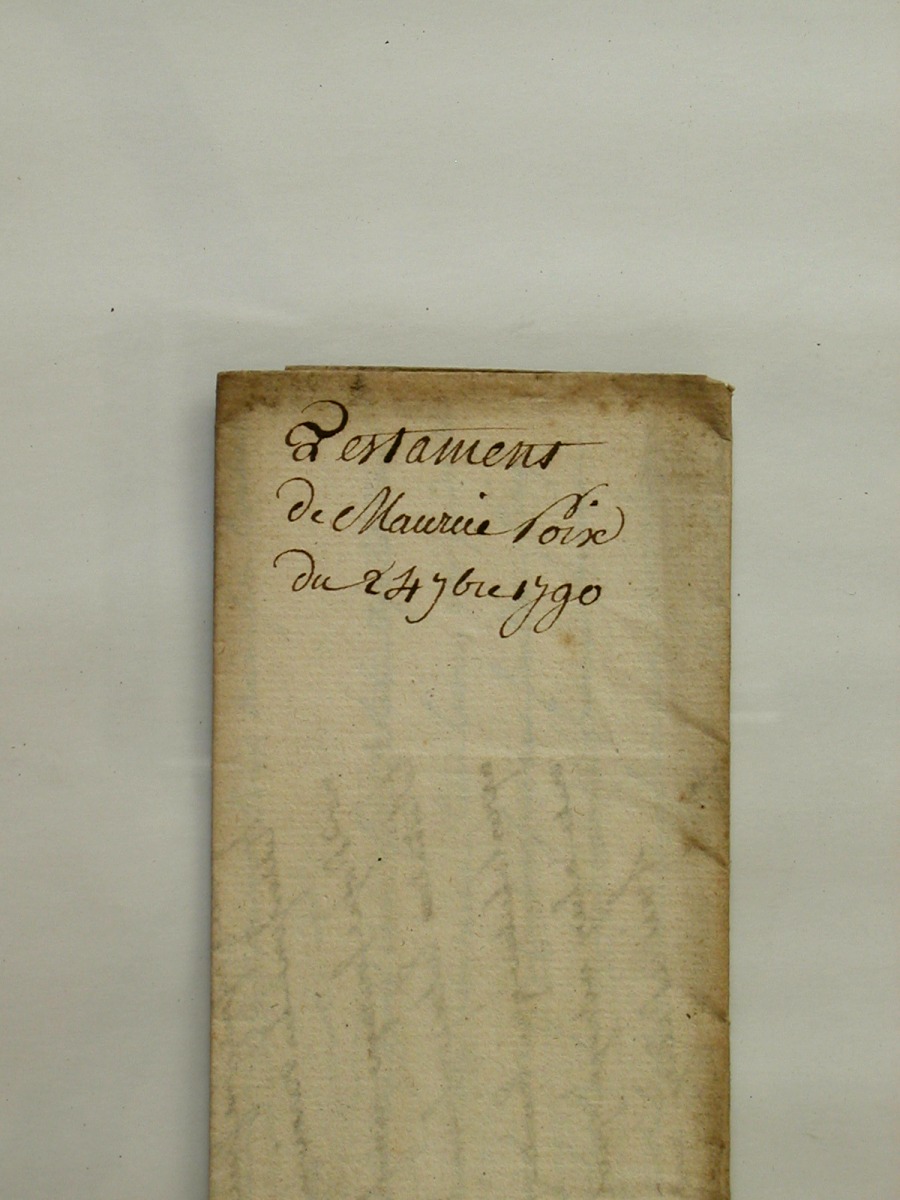 Testament
de Maurice Poix
du 24 7bre 1790